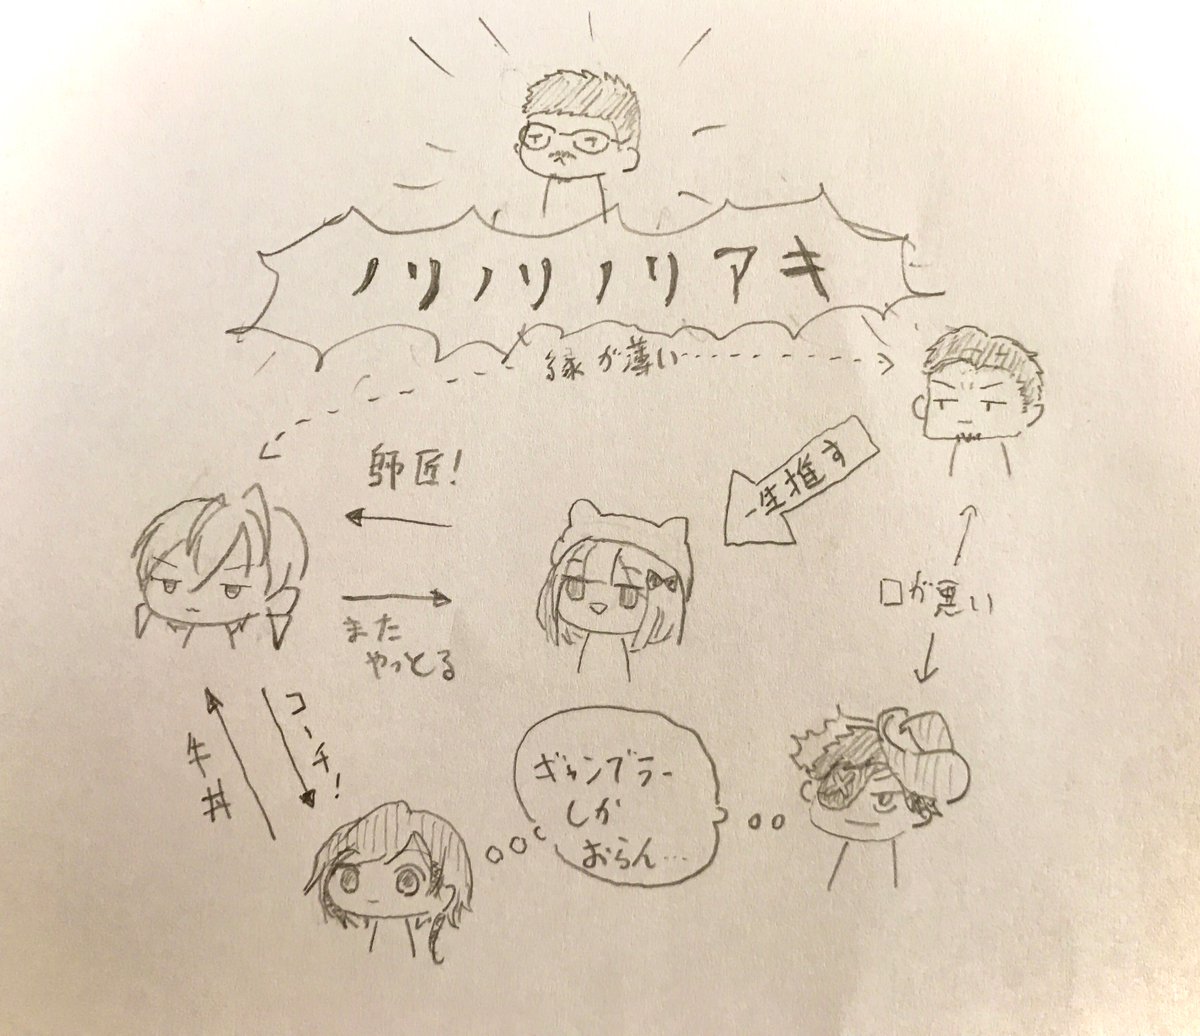 ノリノリノリアキ
縁が薄い
一生推す
師匠!
また
やっとる
口が悪い
コーチ!
牛丼
ギャンブラー
しか
おらん…